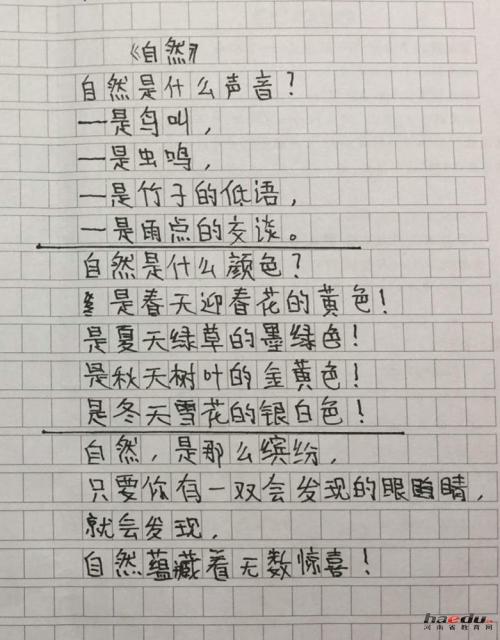 《自然》
自然是什么声音？
一是鸟叫，
一是虫鸣，
一是竹子的低语，
一是雨点的交谈。
自然是什么颜色？
是春天迎春花的黄色！
是夏天绿草的墨绿色！
是秋天树叶的金黄色！
是冬天雪花的银白色！
自然，是那么缤纷，
只要你有一双会发现的眼睛，
就会发现，
自然蕴藏着无数惊喜！
haedu.cn
河南省教育网